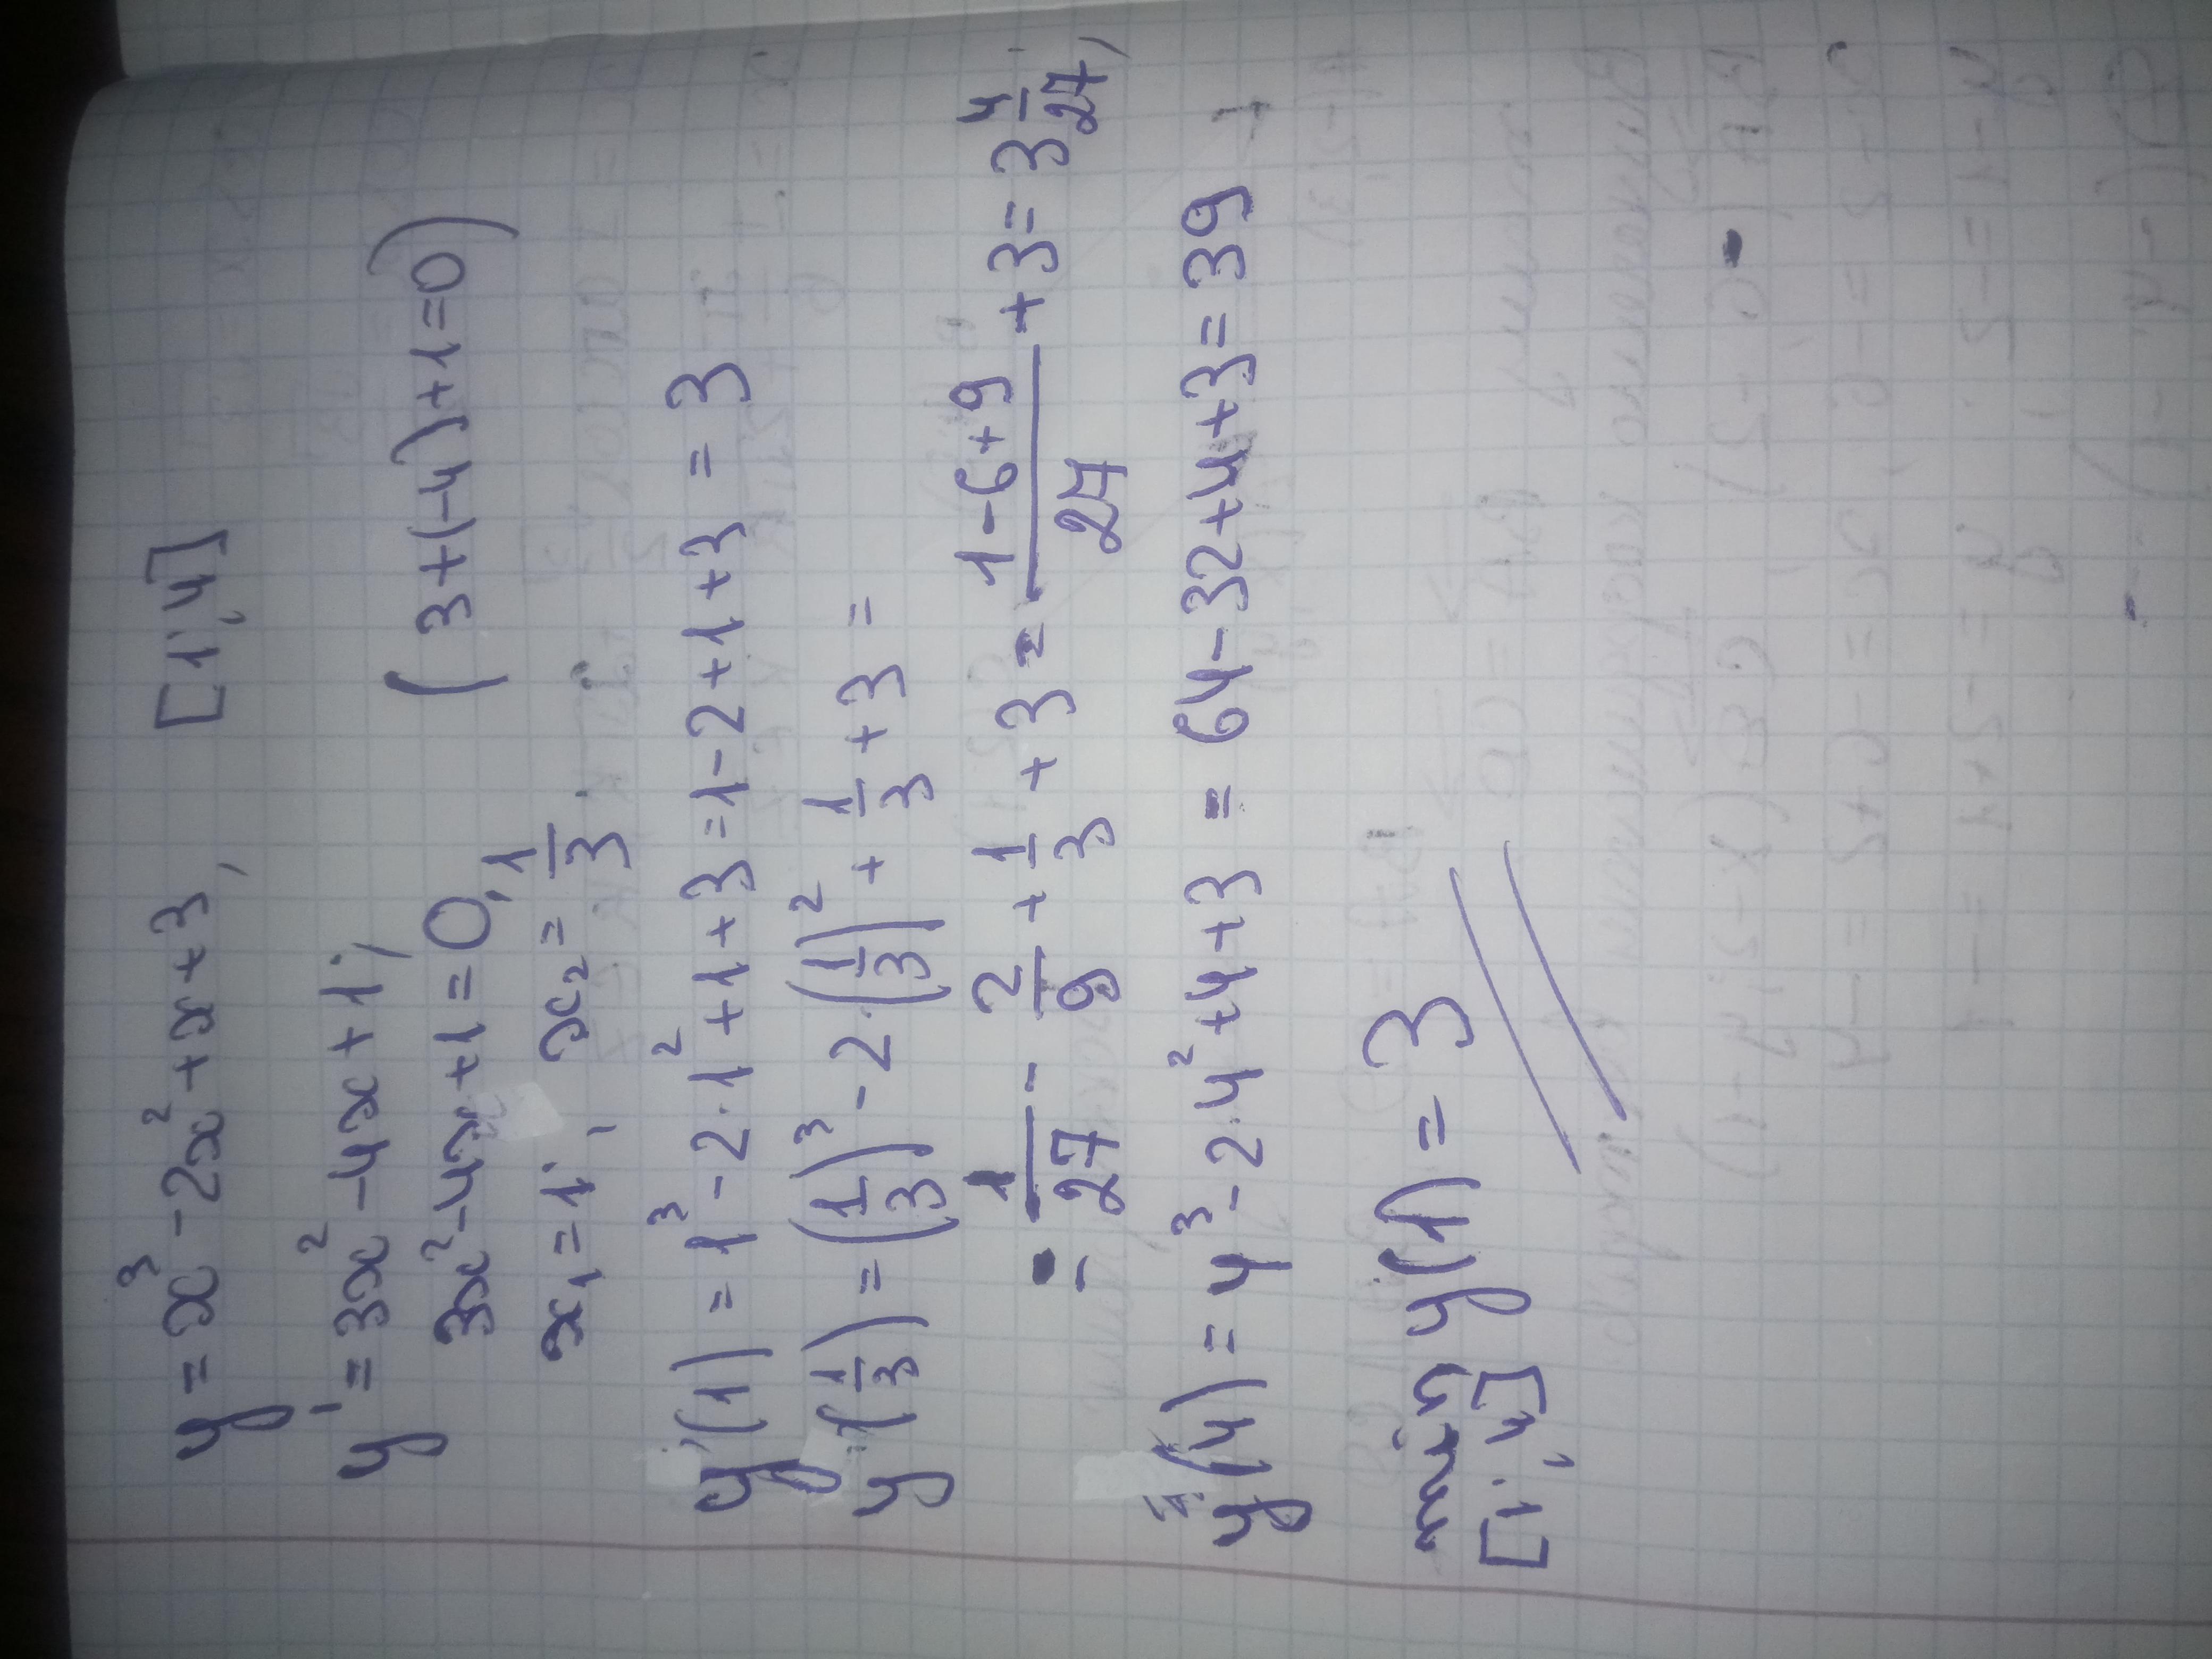 y = x³ - 2x² + x + 3, [1; 4]
y' = 3x² - 4x + 1;
3x² - 4x + 1 = 0, (3 + (-4) + 1 = 0)
x₁ = 1; x₂ = 1/3.
y(1) = 1³ - 2·1² + 1 + 3 = 1 - 2 + 1 + 3 = 3
y(1/3) = (1/3)³ - 2·(1/3)² + 1/3 + 3 =
= 1/27 - 2/9 + 1/3 + 3 = (1-6+9)/27 + 3 = 3 4/27,
y(4) = 4³ - 2·4² + 4 + 3 = 64 - 32 + 4 + 3 = 39
min y(1) = 3
[1; 4]